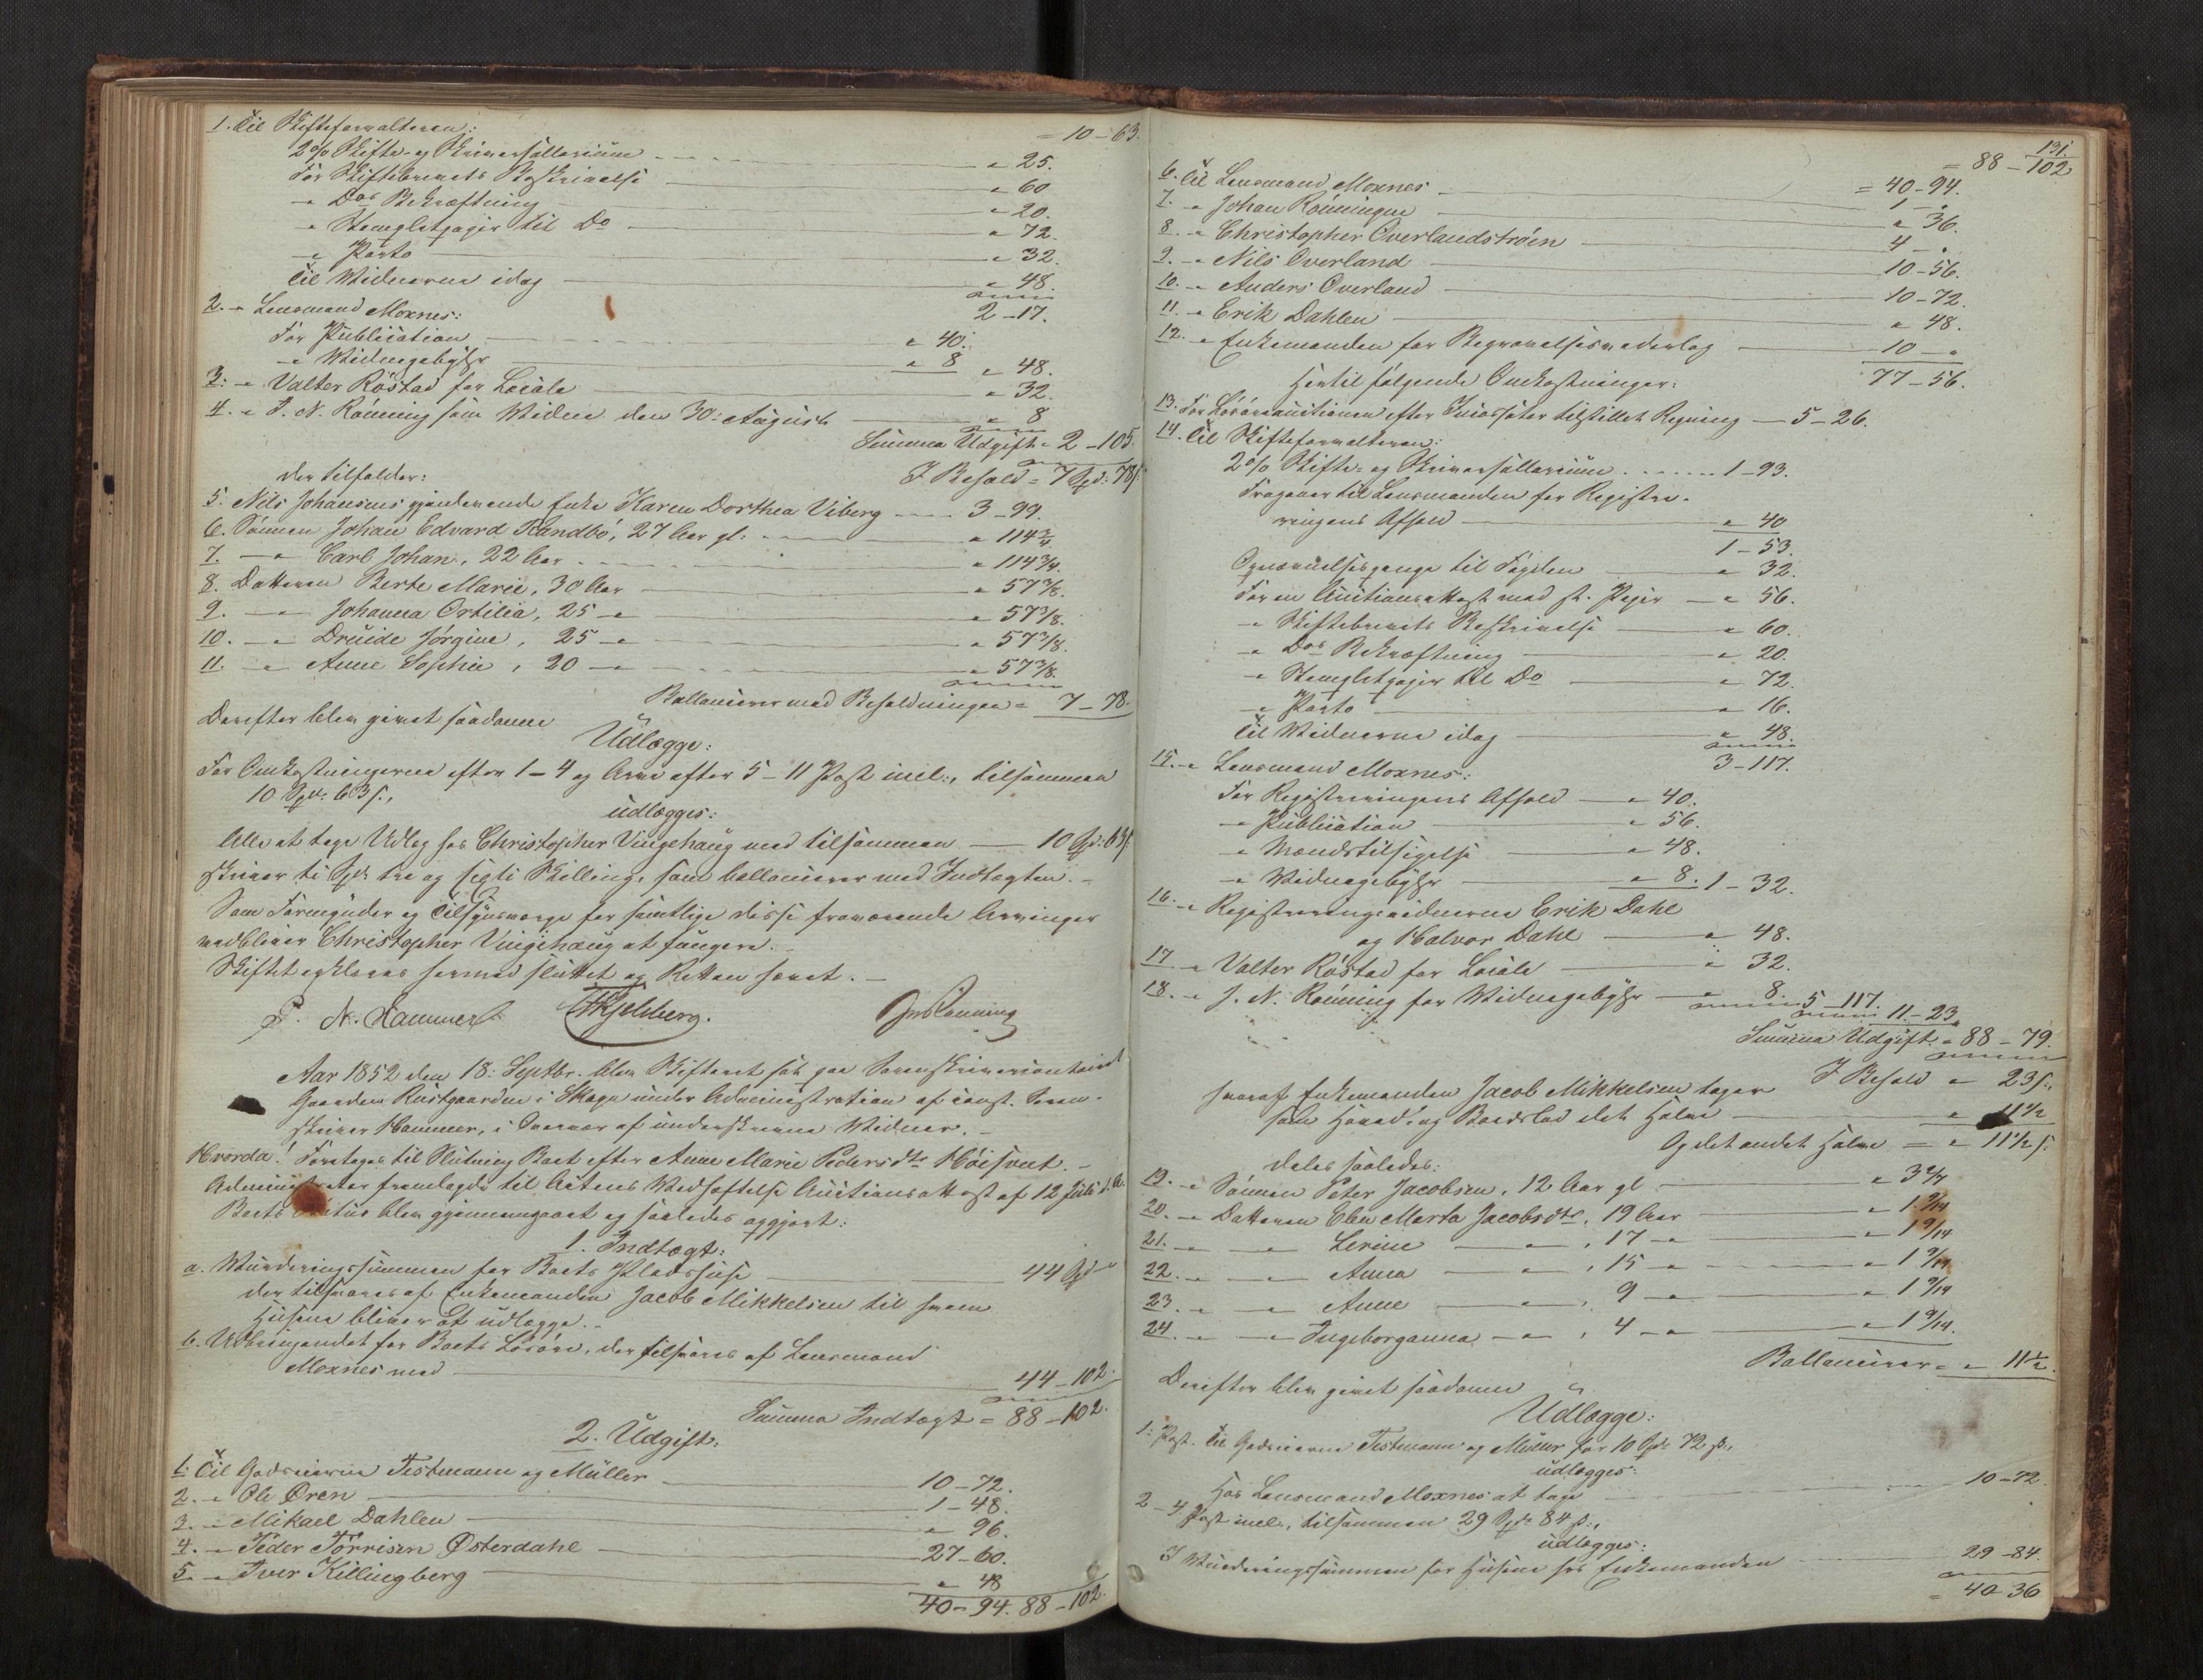 = 10 – 63.
1. Til Skifteforvalteren:
2% Skifte- og Skriversallarium " 25.
For Skiftebrevets Beskrivelse " 60
" Dos Bekræftning " 20.
" Stemplet papir til Do " 72.
" Porto " 32.
Til Vidnerne idag " 48.
2 – 17.
2. " Lensmand Moxnes:
For Publication " 40.
" Vidnegebyhr " 8 " 48.
3. " Valter Röstad for Locale " 32.
4. " J. N. Rönning som Vidne den 30: August " 8
Summa Udgift = 2 – 105.
I Behold = 7 Spd: 78 s.
der tilfalder:
5. Nils Johansens gjenlevende Enke Karen Dorthea Viberg 3 – 99.
6. Sönnen Johan Edvard Kandbö, 27 Aar gl: " 114 3/4
7. " Carl Johan, 22 Aar " 114 3/4.
8. Datteren Berte Marie, 30 Aar " 57 3/8.
9. " Johanna Ortilia, 25 " " 57 3/8.
10. " Druide Jörgine, 25 " " 57 3/8.
11. " Anne Sophie, 20 " " 57 3/8.
Ballancerer med Beholdningen = 7 – 78.
Derefter blev gjort saadanne
Udlægge:
For Omkostningerne efter 1 – 4 og Arve efter 5 – 11 Post incl:, tilsammen
10 Spd: 63 s.,
udlægges:
Alle at tage Udlæg hos Christopher Vingehaug med tilsammen 10 Spd: 63 s.
skriver ti Spd. tre og sexti Skilling, som ballancerer med Indtægten. –
Som Formynder og Tilsynsværge for samtlige disse fraværende Arvinger
vedbliver Christopher Vingehaug at fungere. –
Skiftet erklæres hermed sluttet og Retten hævet. –
P. N. Hammer Kjeldberg. JNRönning
Aar 1852 den 18: Septbr. blev Skifteret sat paa Sorenskrivercontoiret
Gaarden Rustgaarden i Skogn under Administration af const. Soren-
skriver Hammer, i Overvær af underskrevne Vidner. –
Hvorda! Foretages til Slutning Boet efter Anne Marie Pedersdtr Höisveet. –
Administrator fremlagde til Actens Vedheftelse Auctionsattest af 12 Juli d. A.
Boets Status blev gjennemgaaet og saaledes opgjort:
1. Indtægt:
a. Vurderingssummen for Boets Pladshuse 44 Spd "
der tilsvares af Enkemanden Jacob Mikkelsen til hvem
Husene bliver at udlægge. –
b. Udbringendet for Boets Lösöre, der tilsvares af Lensmand
Moxnes med 44 – 102.
Summa Indtægt = 88 – 102.
2. Udgift:
1. Til Godseierne Jestmann og Müller 10 – 72.
2. " Ole Øren 1 – 48.
3. " Mikael Dahlen " 96.
4. " Peder Törrisen Østerdahl 27 – 60.
5. " Iver Killingberg " 48
40 – 94. 88 – 102.
131.
= 88 – 102
= 40 – 94.
6. Til Lensmand Moxnes 1 – "
7. " Johan Rönningen " 36.
8. " Christopher Overlandströen 4 – "
9. " Nils Overland 10 – 56.
10. " Anders Overland 10 – 72.
11. " Erik Dahlen " 48.
12. " Enkemanden for Begravelsesvederlag 10 – "
77 – 56.
Hertil følgende Omkostninger:
13. For Lösöreauctionen efter tilstillet Regning 5 – 26.
14. Til Skifteforvalteren:
2% Skifte- og Skriversallarium 1 – 93.
Fragaaer til Lensmanden for Registre-
ringens Afhold " 40
1 – 53.
Opnævnelsespenge til Fogden " 32.
For en Auctionsattest med st. Papir " 56.
" Skiftebrevets Beskrivelse " 60.
" Dos Bekræftning " 20.
" Stemplet papir til Do " 72.
" Porto " 16.
Til Vidnerne idag " 48.
3 – 117.
15. " Lensmand Moxnes:
For Registreringens Afhold " 40.
" Publication " 56.
" Mændstilsigelse " 48.
" Vidnegebyhr " 8. 1 – 32.
16. " Registreringsvidnerne Erik Dahl
og Halvor Dahl " 48.
17 " Valter Röstad for Locale " 32.
18. " J. N. Rönning for Vidnegebyhr " 8. 5 – 117.
11 – 23.
Summa Udgift = 88 – 79.
I Behold " 23 s.,
hvoraf Enkemanden Jacob Mikkelsen tager
som Hoved- og Boeslod det Halve " 11 1/2
Og det andet Halve = " 11 1/2 s.
deles saaledes:
19. " Sönnen Peter Jacobsen, 12 Aar gl " 3 2/7
20. " Datteren Elen Marta Jacobsdtr, 19 Aar " 1 9/14
21. " " Lerine " , 17 " " 1 9/14
22. " " Anna " , 15 " " 1 9/14
23. " " Anne " , 9 " " 1 9/14
24. " " Ingeborganna " , 4 " " 1 9/14.
Ballancerer = " 11 1/2.
Derefter blev gjort saadanne
Udlægge:
1: Post. Til Godseierne Jestmann og Müller for 10 Spd: 72 s.,
udlægges:
Hos Lensmand Moxnes at tage 10 – 72.
2 – 4 Post incl., tilsammen 29 Spd: 84 s.,
udlægges:
I Vurderingssummen for Husene hos Enkemanden 29 – 84.
= 40 – 36